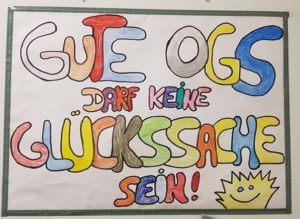 GUTE OGS
DARF KEINE
GLÜCKSSACHE
SEIN!